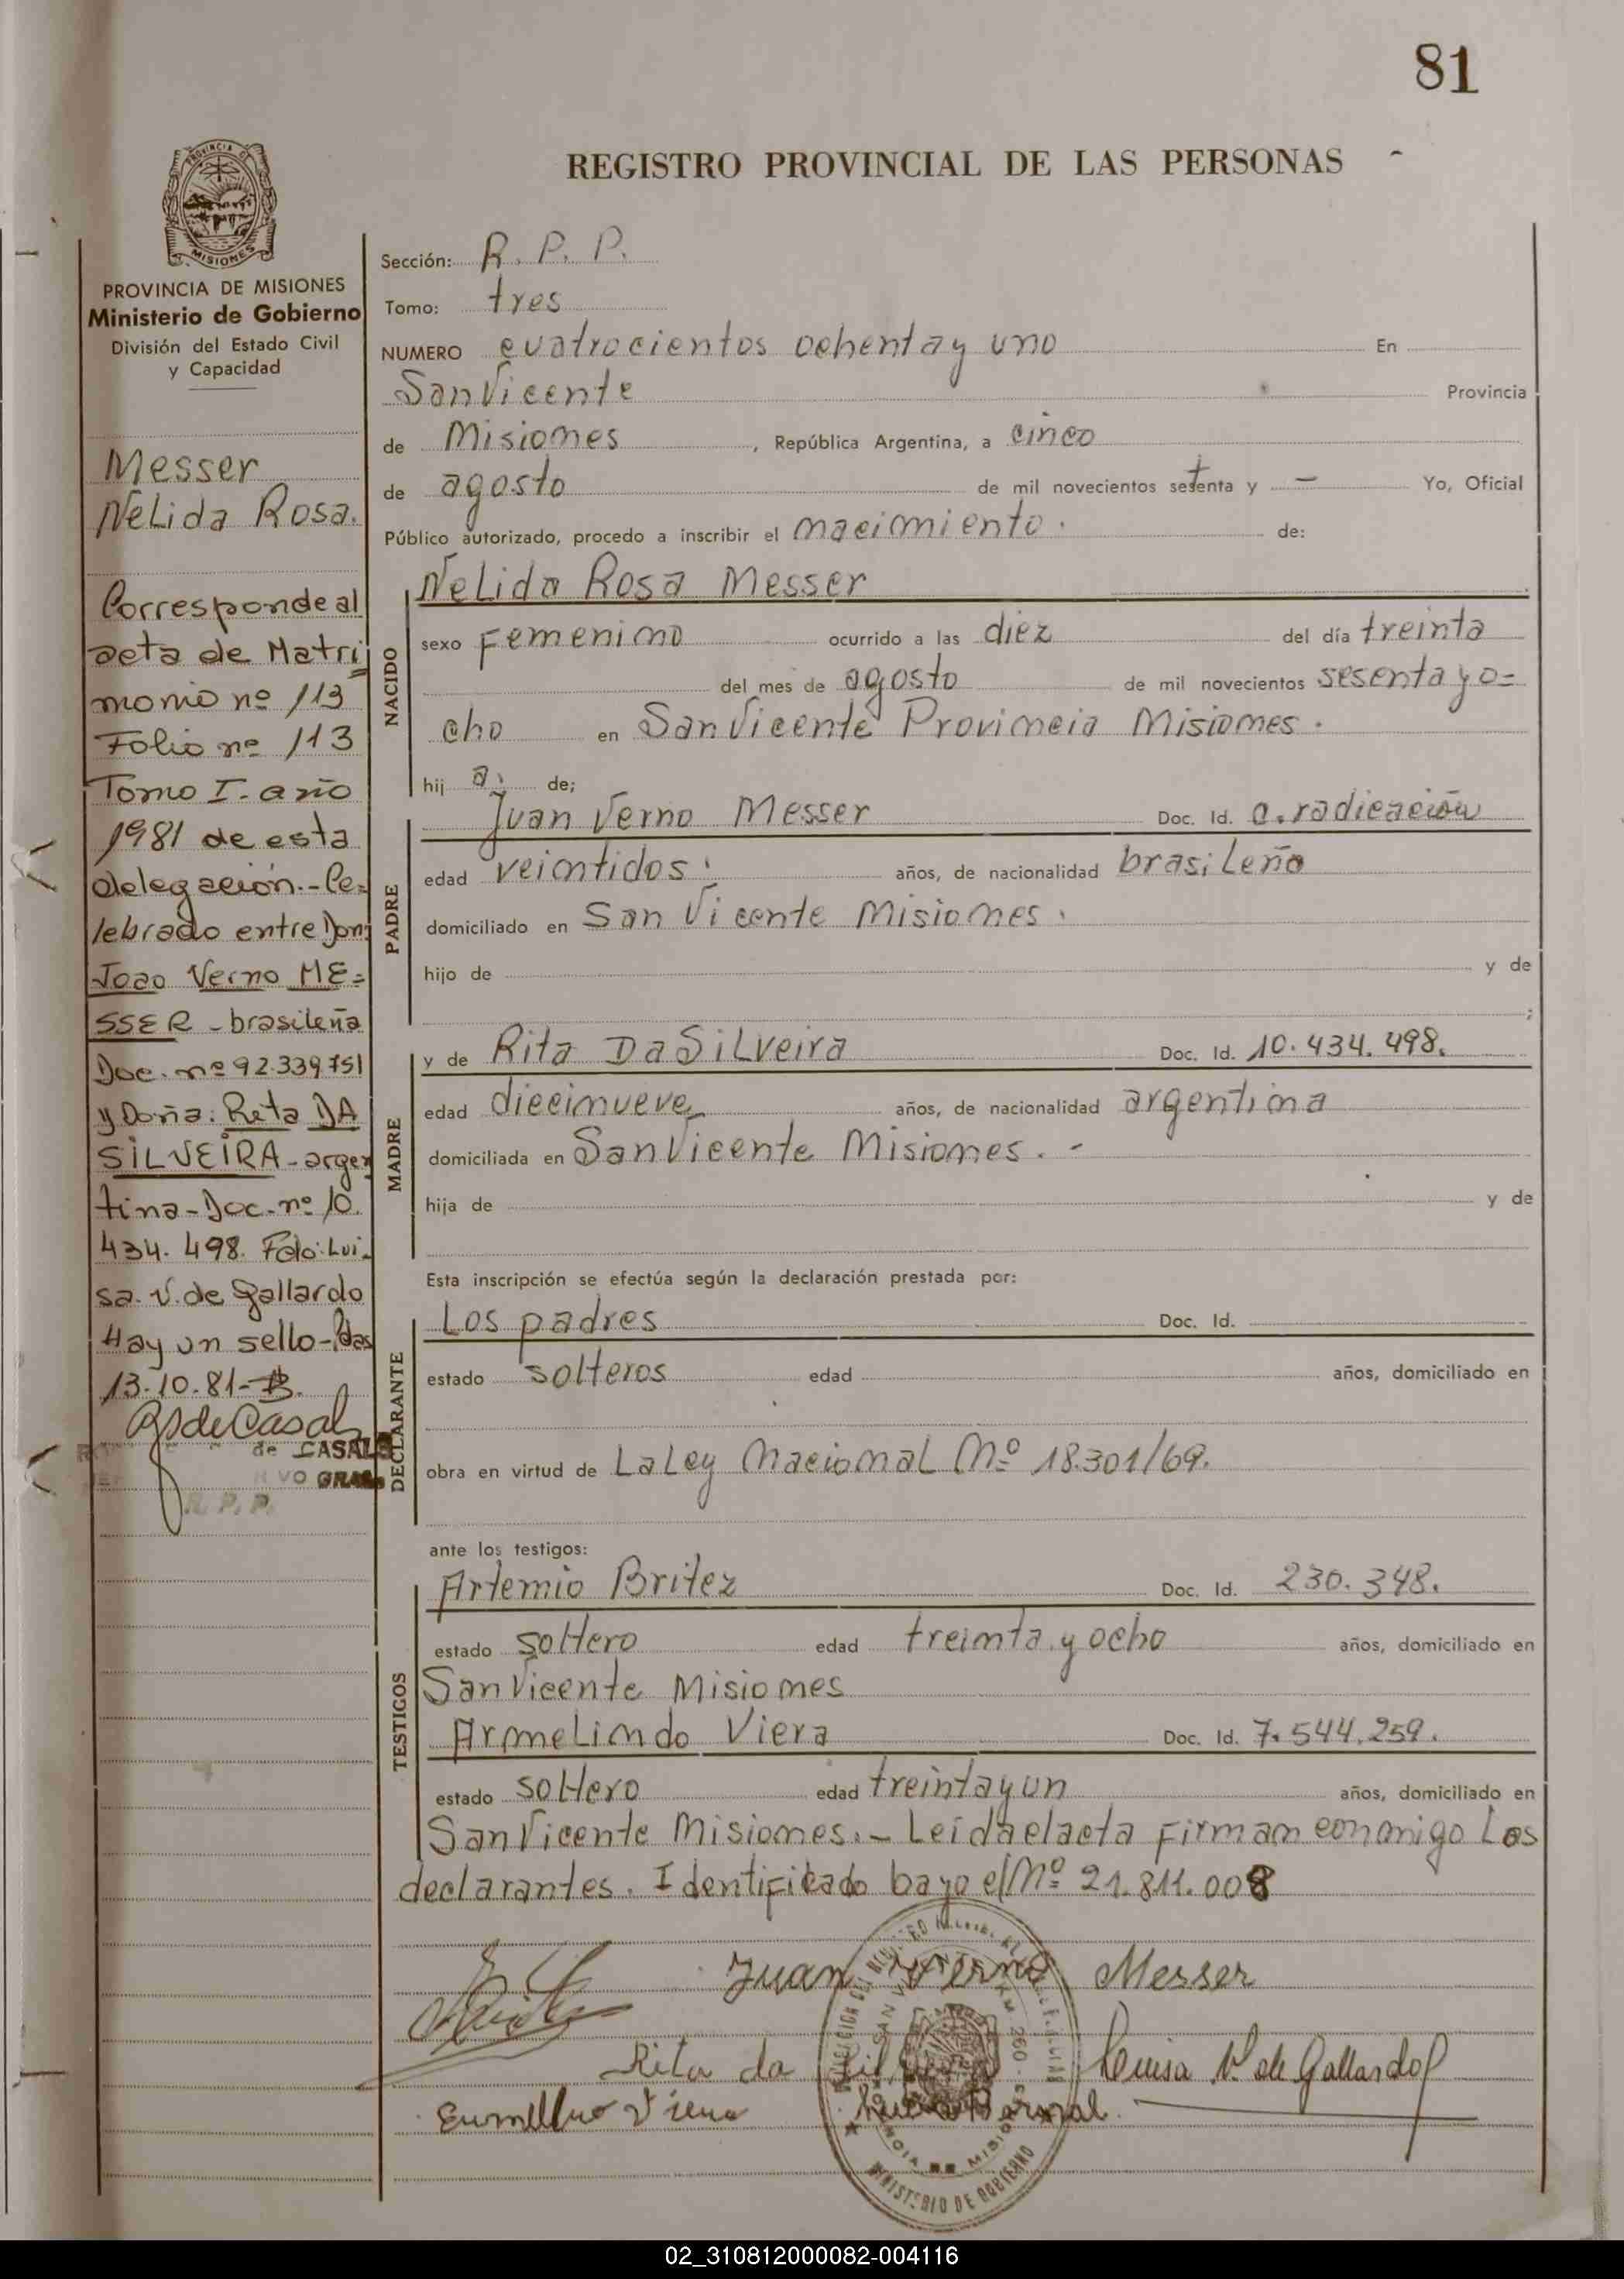 81
REGISTRO PROVINCIAL DE LAS PERSONAS
PROVINCIA DE
MISIONES
PROVINCIA DE MISIONES
Ministerio de Gobierno
División del Estado Civil
y Capacidad
Messer
Nelida Rosa.
Corresponde al
acta de Matri
monio nº 113
Folio nº 113
Tomo I - año
1981 de esta
delegación.- Ce=
lebrado entre Don:
Joao Verno ME=
SSER - brasileña
Doc. nº 92.339.751
y Doña: Rita DA
SILVEIRA - argen
tina - Doc. nº 10.
434.498. Fdo: Lui-
sa. V. de Gallardo
Hay un sello - Pdas
13.10.81-
de CASALS
VO GRAL
R. P. P.
Sección: R. P. P.
Tomo: tres
NUMERO cuatrocientos ochenta y uno En
San Vicente Provincia
de Misiones, República Argentina, a cinco
de agosto de mil novecientos setenta y — Yo, Oficial
Público autorizado, procedo a inscribir el nacimiento. de:
NACIDO
Nelida Rosa Messer
sexo Femenino ocurrido a las diez del día treinta
del mes de agosto de mil novecientos sesenta y o=
cho en San Vicente Provincia Misiones.
hij a. de;
PADRE
Juan Verno Messer Doc. Id. C. radicación
edad veintidos. años, de nacionalidad brasileño
domiciliado en San Vicente Misiones.
hijo de y de
;
MADRE
y de Rita Da Silveira Doc. Id. 10.434.498.
edad diecinueve años, de nacionalidad argentina
domiciliada en San Vicente Misiones. -
hija de y de
Esta inscripción se efectúa según la declaración prestada por:
DECLARANTE
Los padres Doc. Id.
estado solteros edad años, domiciliado en
obra en virtud de La Ley Nacional Nº 18.301/69.
ante los testigos:
TESTIGOS
Artemio Britez Doc. Id. 230.348.
estado soltero edad treinta y ocho años, domiciliado en
San Vicente Misiones
Armelindo Viera Doc. Id. 7.544.259.
estado soltero edad treinta y un años, domiciliado en
San Vicente Misiones. - Leida el acta Firman conmigo Los
declarantes. Identificado bajo el Nº 21.811.008
Juan Verno Messer
Rita da Luisa V. de Gallardo
Viera
MINISTERIO DE GOBIERNO
02_310812000082-004116